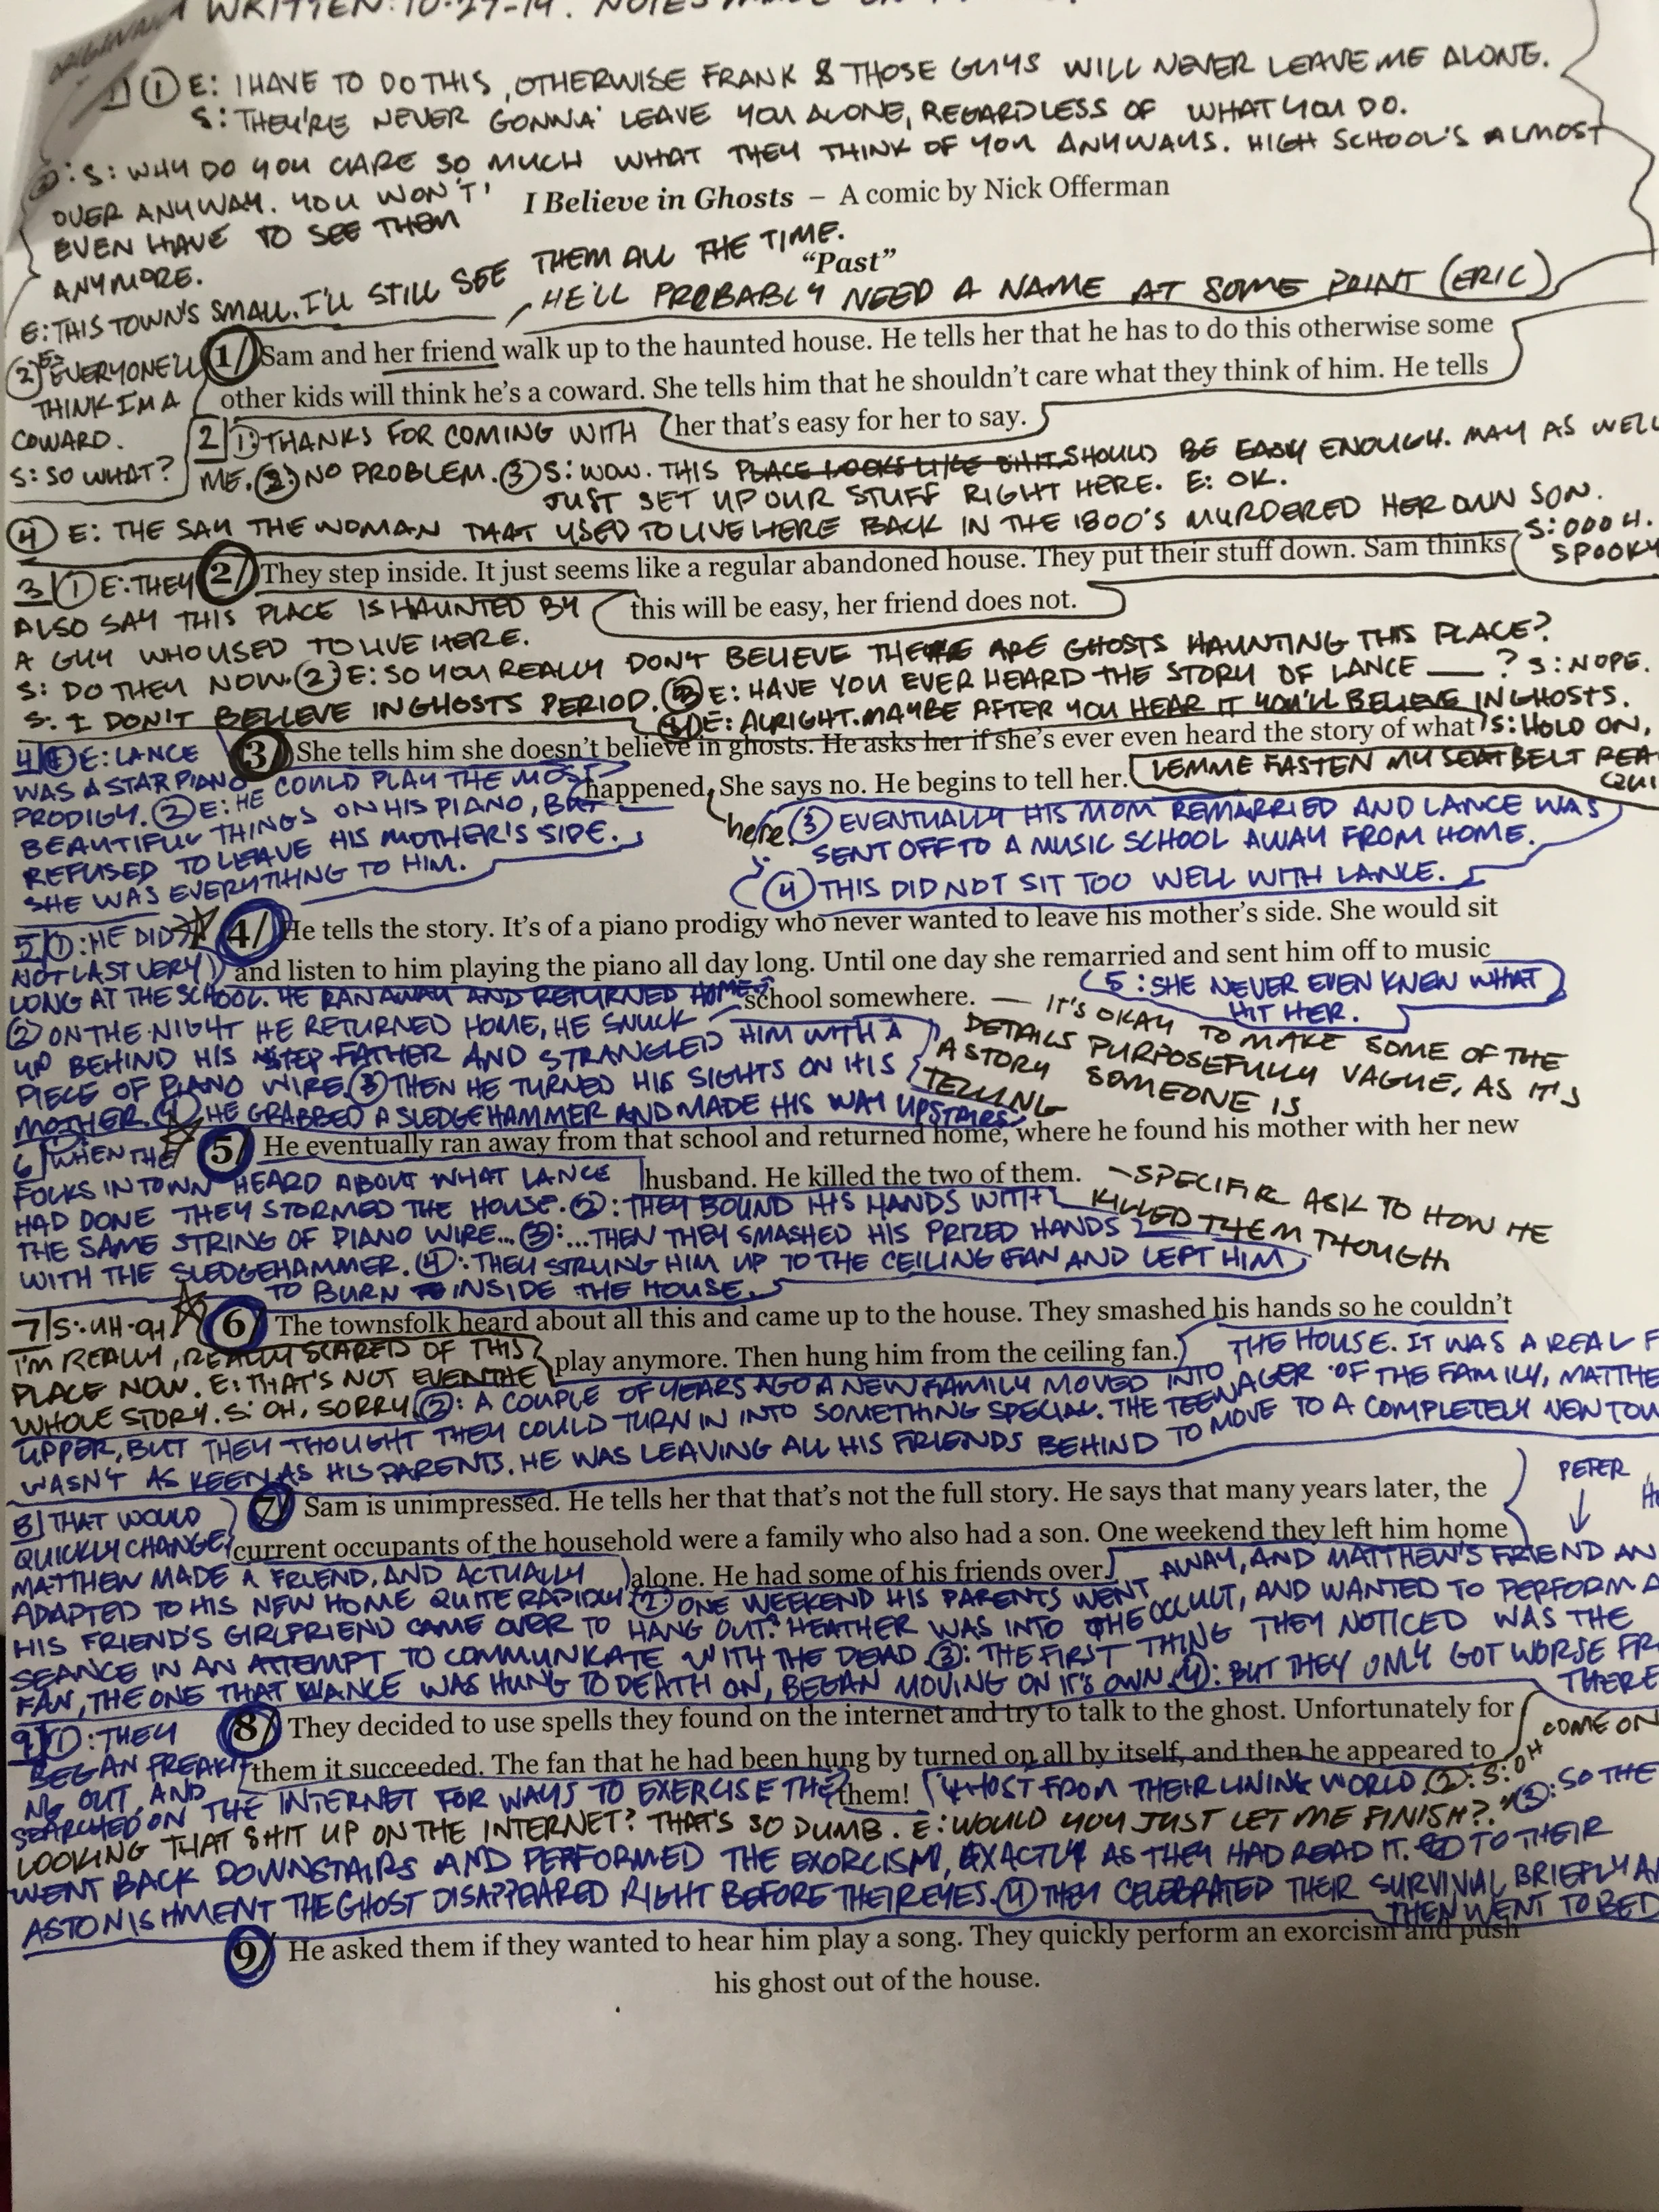 WRITTEN: 10-29-14. NOTES MADE ON
ORIGINAL
1/ ① E: I HAVE TO DO THIS, OTHERWISE FRANK & THOSE GUYS WILL NEVER LEAVE ME ALONE.
S: THEY'RE NEVER GONNA' LEAVE YOU ALONE, REGARDLESS OF WHAT YOU DO.
②: S: WHY DO YOU CARE SO MUCH WHAT THEY THINK OF YOU ANYWAYS. HIGH SCHOOL'S ALMOST
OVER ANYWAY. YOU WON'T
EVEN HAVE TO SEE THEM
ANYMORE.
I Believe in Ghosts – A comic by Nick Offerman
"Past"
E: THIS TOWN'S SMALL. I'LL STILL SEE THEM ALL THE TIME.
HE'LL PROBABLY NEED A NAME AT SOME POINT (ERIC)
② E: EVERYONE'LL
THINK I'M A
COWARD.
S: SO WHAT?
1/ Sam and her friend walk up to the haunted house. He tells her that he has to do this otherwise some
other kids will think he's a coward. She tells him that he shouldn't care what they think of him. He tells
her that's easy for her to say.
2 ①: THANKS FOR COMING WITH
ME. ②: NO PROBLEM. ③ S: WOW. THIS PLACE LOOKS LIKE SHIT SHOULD BE EASY ENOUGH. MAY AS WELL
JUST SET UP OUR STUFF RIGHT HERE. E: OK.
④ E: THE SAY THE WOMAN THAT USED TO LIVE HERE BACK IN THE 1800'S MURDERED HER OWN SON.
S: OOOH.
SPOOKY
2/ They step inside. It just seems like a regular abandoned house. They put their stuff down. Sam thinks
this will be easy, her friend does not.
3/ ① E: THEY
ALSO SAY THIS PLACE IS HAUNTED BY
A GUY WHO USED TO LIVE HERE.
S: DO THEY NOW. ②: E: SO YOU REALLY DON'T BELIEVE THERE ARE GHOSTS HAUNTING THIS PLACE?
S: I DON'T BELIEVE IN GHOSTS PERIOD. ③ E: HAVE YOU EVER HEARD THE STORY OF LANCE ? S: NOPE.
④ E: ALRIGHT. MAYBE AFTER YOU HEAR IT YOU'LL BELIEVE IN GHOSTS.
S: HOLD ON,
LEMME FASTEN MY SEATBELT REA
3/ She tells him she doesn't believe in ghosts. He asks her if she's ever even heard the story of what
happened here. She says no. He begins to tell her.
4/ ① E: LANCE
WAS A STAR PIANO
PRODIGY. ② E: HE COULD PLAY THE MOST
BEAUTIFUL THINGS ON HIS PIANO, BUT
REFUSED TO LEAVE HIS MOTHER'S SIDE.
SHE WAS EVERYTHING TO HIM.
③ EVENTUALLY HIS MOM REMARRIED AND LANCE WAS
SENT OFF TO A MUSIC SCHOOL AWAY FROM HOME.
④ THIS DID NOT SIT TOO WELL WITH LANCE.
4/ He tells the story. It's of a piano prodigy who never wanted to leave his mother's side. She would sit
and listen to him playing the piano all day long. Until one day she remarried and sent him off to music
school somewhere.
— IT'S OKAY TO MAKE SOME OF THE
DETAILS PURPOSEFULLY VAGUE, AS IT'S
A STORY SOMEONE IS
TELLING
5/ ①: HE DID
NOT LAST VERY
LONG AT THE SCHOOL. HE RAN AWAY AND RETURNED HOME.
② ON THE NIGHT HE RETURNED HOME, HE SNUCK
UP BEHIND HIS STEP FATHER AND STRANGLED HIM WITH A
PIECE OF PIANO WIRE. ③ THEN HE TURNED HIS SIGHTS ON HIS
MOTHER. ④ HE GRABBED A SLEDGEHAMMER AND MADE HIS WAY UPSTAIRS.
5: SHE NEVER EVEN KNEW WHAT
HIT HER.
5/ He eventually ran away from that school and returned home, where he found his mother with her new
husband. He killed the two of them.
– SPECIFIC ASK TO HOW HE
KILLED THEM THOUGH
6/ WHEN THE
FOLKS IN TOWN HEARD ABOUT WHAT LANCE
HAD DONE THEY STORMED THE HOUSE. ②: THEY BOUND HIS HANDS WITH
THE SAME STRING OF PIANO WIRE... ③: ...THEN THEY SMASHED HIS PRIZED HANDS
WITH THE SLEDGEHAMMER. ④: THEY STRUNG HIM UP TO THE CEILING FAN AND LEFT HIM
TO BURN INSIDE THE HOUSE.
6/ The townsfolk heard about all this and came up to the house. They smashed his hands so he couldn't
play anymore. Then hung him from the ceiling fan.
7/ S:
I'M REALLY, REALLY SCARED OF THIS
PLACE NOW. E: THAT'S NOT EVEN THE
WHOLE STORY. S: OH, SORRY. ②: A COUPLE OF YEARS AGO A NEW FAMILY MOVED INTO THE HOUSE. IT WAS A REAL F
UPPER, BUT THEY THOUGHT THEY COULD TURN IN INTO SOMETHING SPECIAL. THE TEENAGER OF THE FAMILY, MATTHE
WASN'T AS KEEN AS HIS PARENTS. HE WAS LEAVING ALL HIS FRIENDS BEHIND TO MOVE TO A COMPLETELY NEW TOW
7/ Sam is unimpressed. He tells her that that's not the full story. He says that many years later, the
current occupants of the household were a family who also had a son. One weekend they left him home
alone. He had some of his friends over.
PETER
8/ THAT WOULD
QUICKLY CHANGE,
MATTHEW MADE A FRIEND, AND ACTUALLY
ADAPTED TO HIS NEW HOME QUITE RAPIDLY. ②: ONE WEEKEND HIS PARENTS WENT AWAY, AND MATTHEW'S FRIEND AN
HIS FRIEND'S GIRLFRIEND CAME OVER TO HANG OUT. HEATHER WAS INTO THE OCCULT, AND WANTED TO PERFORM A
SEANCE IN AN ATTEMPT TO COMMUNICATE WITH THE DEAD. ③: THE FIRST THING THEY NOTICED WAS THE
FAN, THE ONE THAT LANCE WAS HUNG TO DEATH ON, BEGAN MOVING ON IT'S OWN. ④: BUT THEY ONLY GOT WORSE FR
THERE
8/ They decided to use spells they found on the internet and try to talk to the ghost. Unfortunately for
them it succeeded. The fan that he had been hung by turned on all by itself, and then he appeared to
them!
9/ ①: THEY
BEGAN FREAKI
NG OUT, AND
SEARCHED ON THE INTERNET FOR WAYS TO EXERCISE THE
GHOST FROM THEIR LIVING WORLD. ②: S: OH COME ON
LOOKING THAT SHIT UP ON THE INTERNET? THAT'S SO DUMB. E: WOULD YOU JUST LET ME FINISH? ③: SO THE
WENT BACK DOWNSTAIRS AND PERFORMED THE EXORCISM, EXACTLY AS THEY HAD READ IT. TO THEIR
ASTONISHMENT THE GHOST DISAPPEARED RIGHT BEFORE THEIR EYES. ④ THEY CELEBRATED THEIR SURVIVAL BRIEFLY AN
THEN WENT TO BED
9/ He asked them if they wanted to hear him play a song. They quickly perform an exorcism and push
his ghost out of the house.